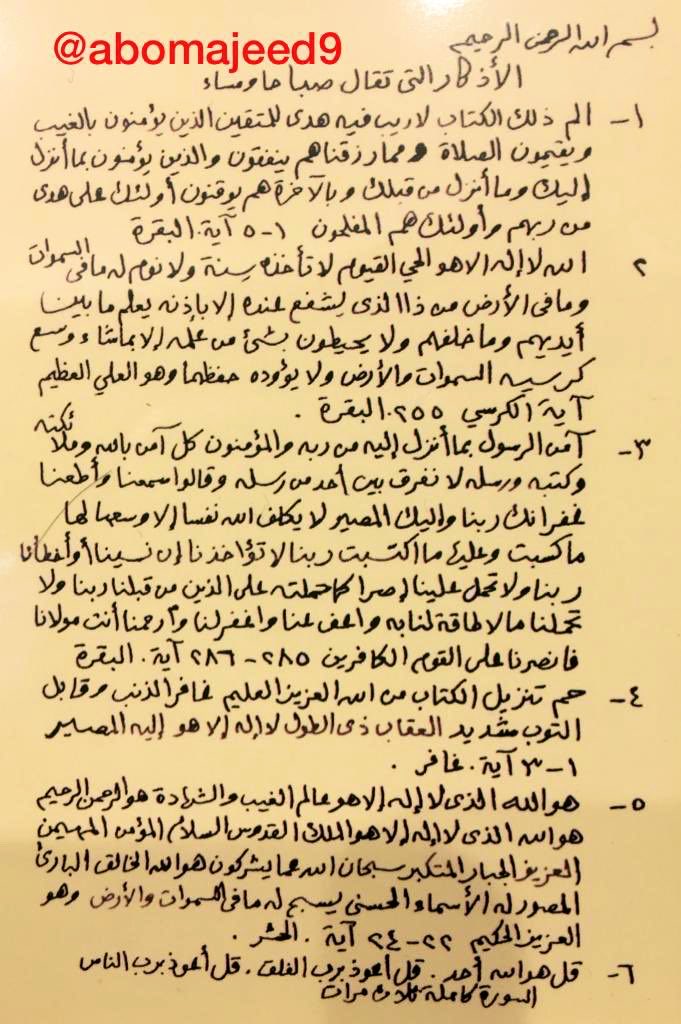 @abomajeed9
بسم الله الرحمن الرحيم
الأذكار التي تقال صباحا ومساء
١- الم ذلك الكتاب لا ريب فيه هدى للمتقين الذين يؤمنون بالغيب
ويقيمون الصلاة ومما رزقناهم ينفقون والذين يؤمنون بما أنزل
إليك وما أنزل من قبلك وبالآخرة هم يوقنون أولئك على هدى
من ربهم وأولئك هم المفلحون ١-٥ آية. البقرة
٢ الله لا إله إلا هو الحي القيوم لا تأخذه سنة ولا نوم له ما في السموات
وما في الأرض من ذا الذى يشفع عنده إلا بإذنه يعلم ما بين
أيديهم وما خلفهم ولا يحيطون بشئ من علمه إلا بما شاء وسع
كرسيه السموات والأرض ولا يؤوده حفظهما وهو العلي العظيم
آية الكرسي ٢٥٥. البقرة .
٣- آمن الرسول بما أنزل إليه من ربه والمؤمنون كل آمن بالله وملائكته
وكتبه ورسله لا نفرق بين أحد من رسله وقالوا سمعنا وأطعنا
غفرانك ربنا وإليك المصير لا يكلف الله نفسا إلا وسعها لها
ما كسبت وعليها ما اكتسبت ربنا لا تؤاخذنا إن نسينا أو أخطأنا
ربنا ولا تحمل علينا إصرا كما حملته على الذين من قبلنا ربنا ولا
تحملنا ما لا طاقة لنا به واعف عنا واغفر لنا وارحمنا أنت مولانا
فانصرنا على القوم الكافرين ٢٨٥-٢٨٦ آية. البقرة
٤- حم تنزيل الكتاب من الله العزيز العليم غافر الذنب وقابل
التوب شديد العقاب ذى الطول لا إله إلا هو إليه المصير
١-٣ آية. غافر .
٥- هو الله الذى لا إله إلا هو عالم الغيب والشهادة هو الرحمن الرحيم
هو الله الذى لا إله إلا هو الملك القدوس السلام المؤمن المهيمن
العزيز الجبار المتكبر سبحان الله عما يشركون هو الله الخالق البارئ
المصور له الأسماء الحسنى يسبح له ما في السموات والأرض وهو
العزيز الحكيم ٢٢-٢٤ آية . الحشر .
٦- قل هو الله أحد . قل أعوذ برب الفلق . قل أعوذ برب الناس
السورة كاملة ثلاث مرات